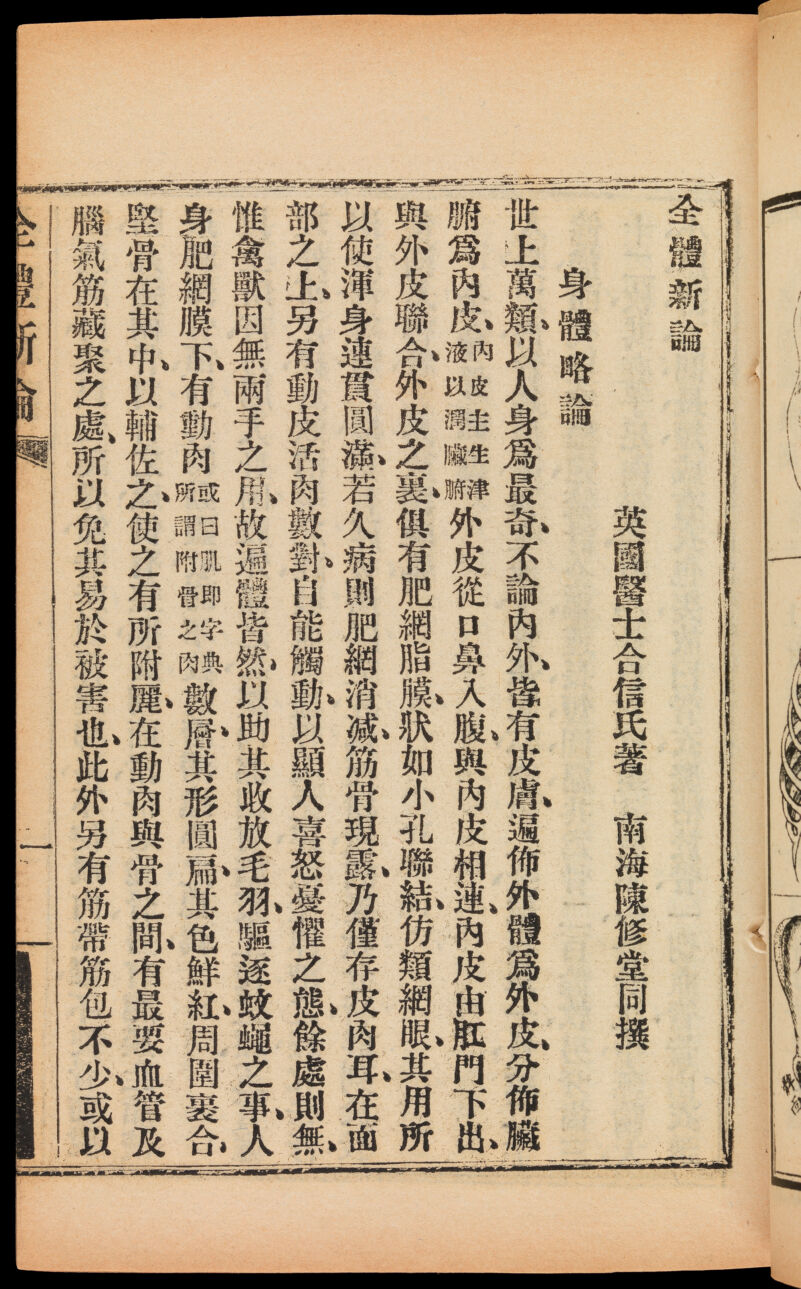 全體新論
英國醫士合信氏著　南海陳修堂同撰
身體略論
世上萬類、以人身爲最奇、不論內外、皆有皮膚、遍佈外體爲外皮、分佈臟
腑爲內皮、內皮主生津液以潤臟腑外皮從口鼻入腹、與內皮相連、內皮由肛門下出、
與外皮聯合、外皮之裏、俱有肥網脂膜、狀如小孔聯結、仿類網眼、其用所
以使渾身連貫圓滿、若久病則肥網消减、筋骨現露、乃僅存皮肉耳、在面
部之上、另有動皮活肉數對、自能觸動、以顯人喜怒憂懼之態、餘處則無、
惟禽獸因無兩手之用、故遍體皆然、以助其收放毛羽、驅逐蚊蠅之事、人
身肥網膜下、有動肉或曰肌即字典所謂附骨之肉數層、其形圓扁、其色鮮紅、周圍裹合、
堅骨在其中、以輔佐之、使之有所附麗、在動肉與骨之間、有最要血管及
腦氣筋藏聚之處、所以免其易於被害也、此外另有筋帶筋包不少、或以
全體新論
一